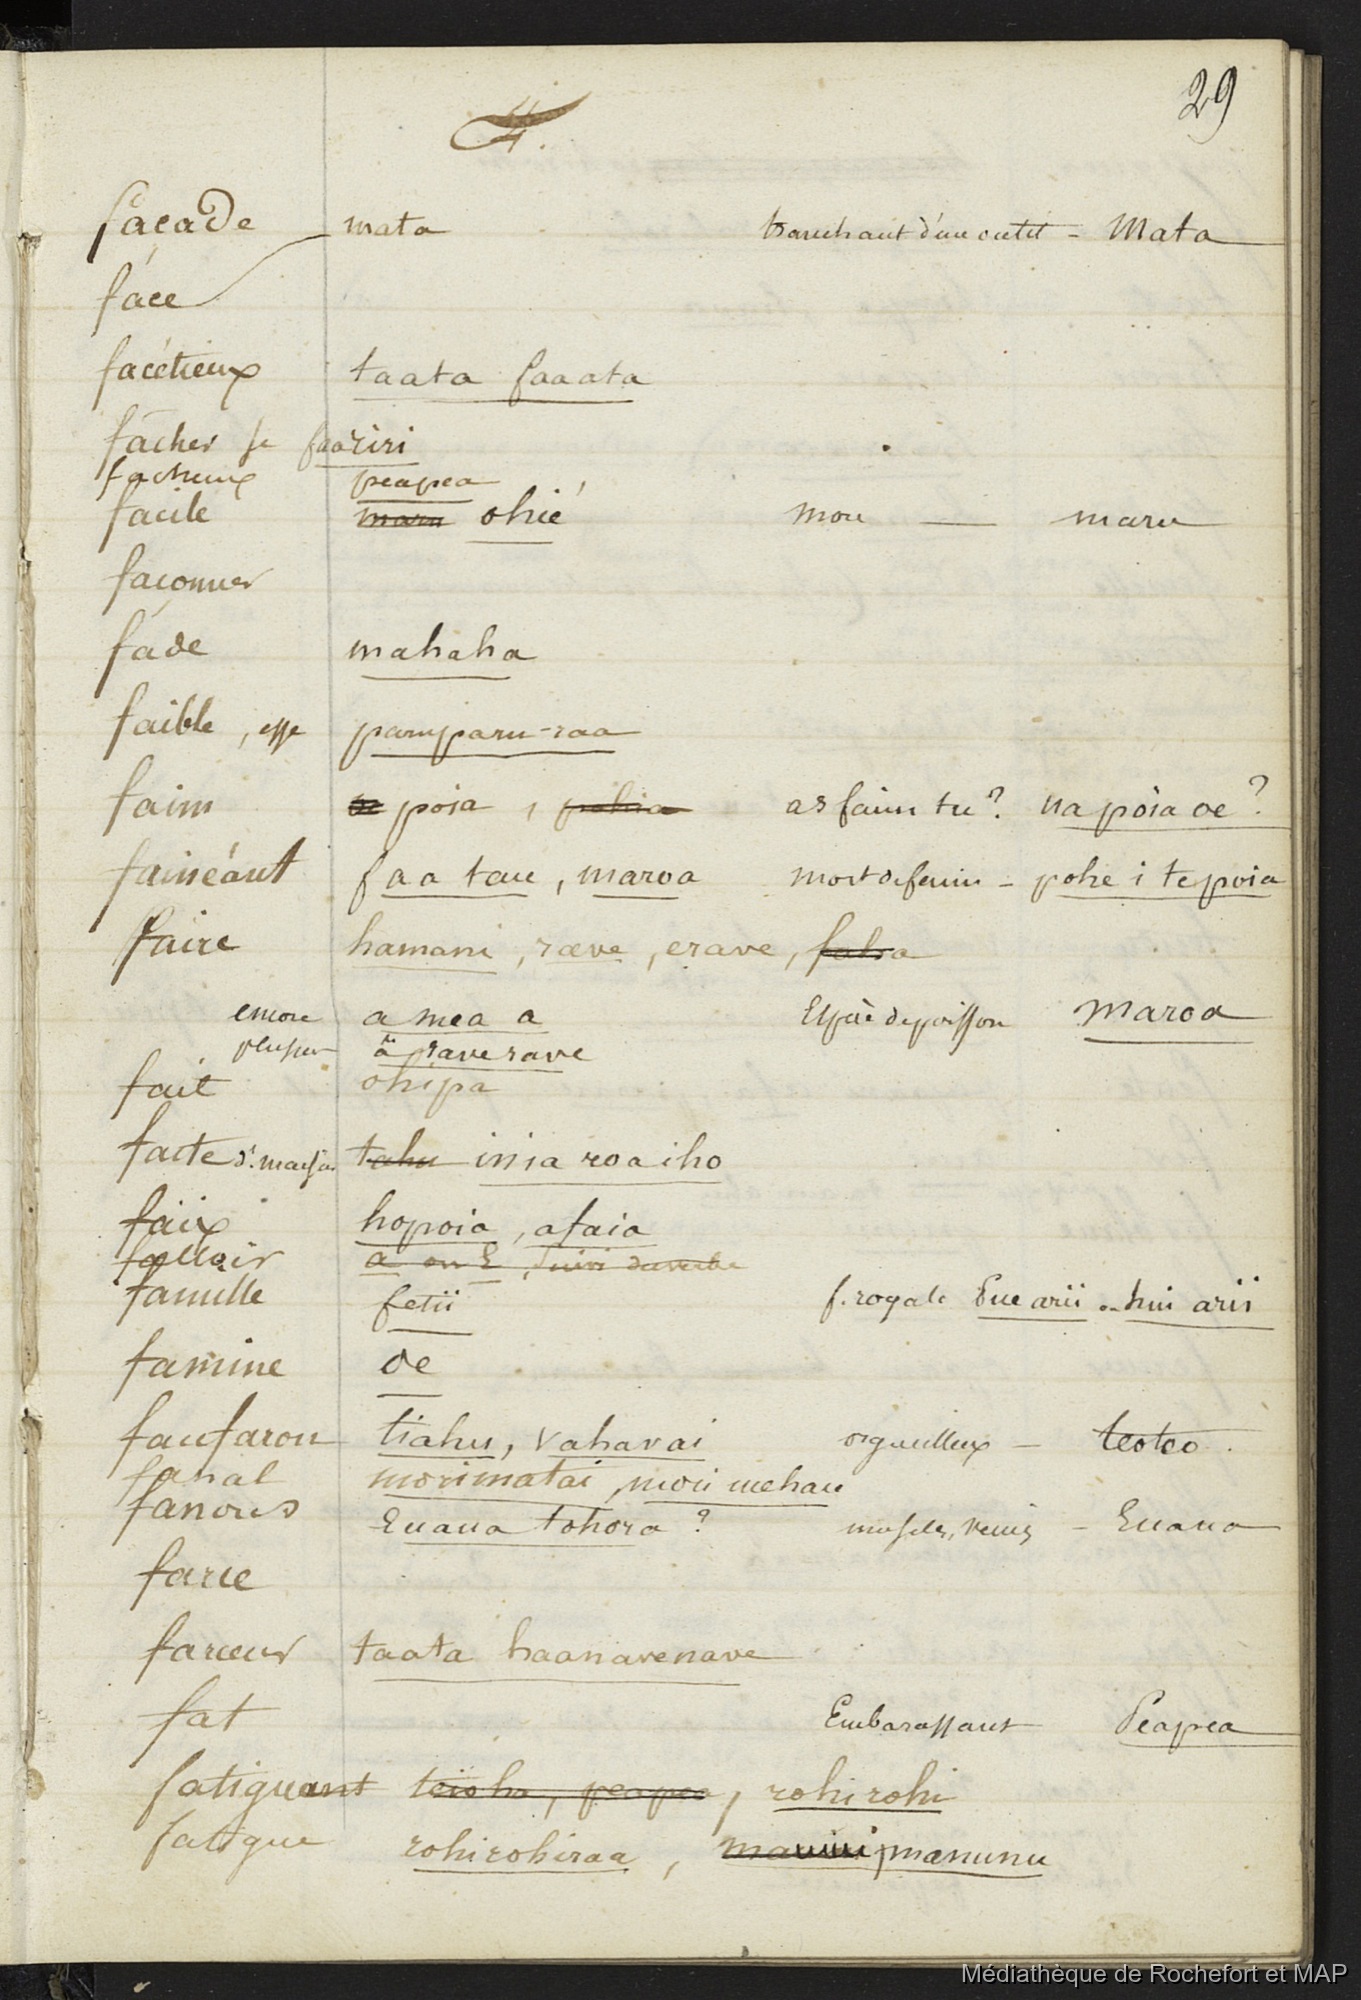 29
F.
façade mata tranchant d'un outil - Mata
face
facétieux taata faaata
fâcher se faariri
facheux peapea
facile maru ohié mou — maru
façonner
fade mahaha
faible, esse paruparu-raa
faim oe poia, pohia as faim tu? ua pôia oe?
fainéant faa tau, maroa mort de faim - pohe i te poia
faire hamani, rave, erave,
encore a mea a Espèce de poisson maroa
plusieurs ä raverave
fait ohipa
faîte d. maison tahu inia roa iho
faix hopoia, afaia
falloir a ou E, suivi du verbe
famille fetii f. royale Eue arii ou hui arii
famine oe
fanfaron tiahu, vahavai orgueilleux - teoteo.
fanal morimatai, mori mehau
fanons Euaua tohora? muscles, veines - Euaua
farce
farceur taata haanavenave
fat Embarassant Peapea
fatiguant teioha, peapea, rohirohi
fatigue rohirohiraa, manunu
Médiathèque de Rochefort et MAP